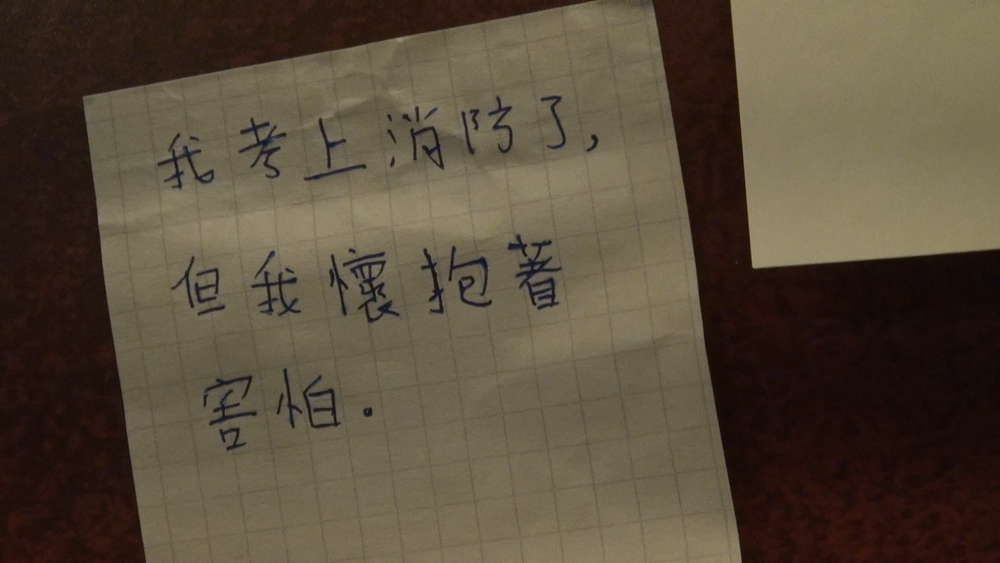 我考上消防了,
但我懷抱著
害怕.